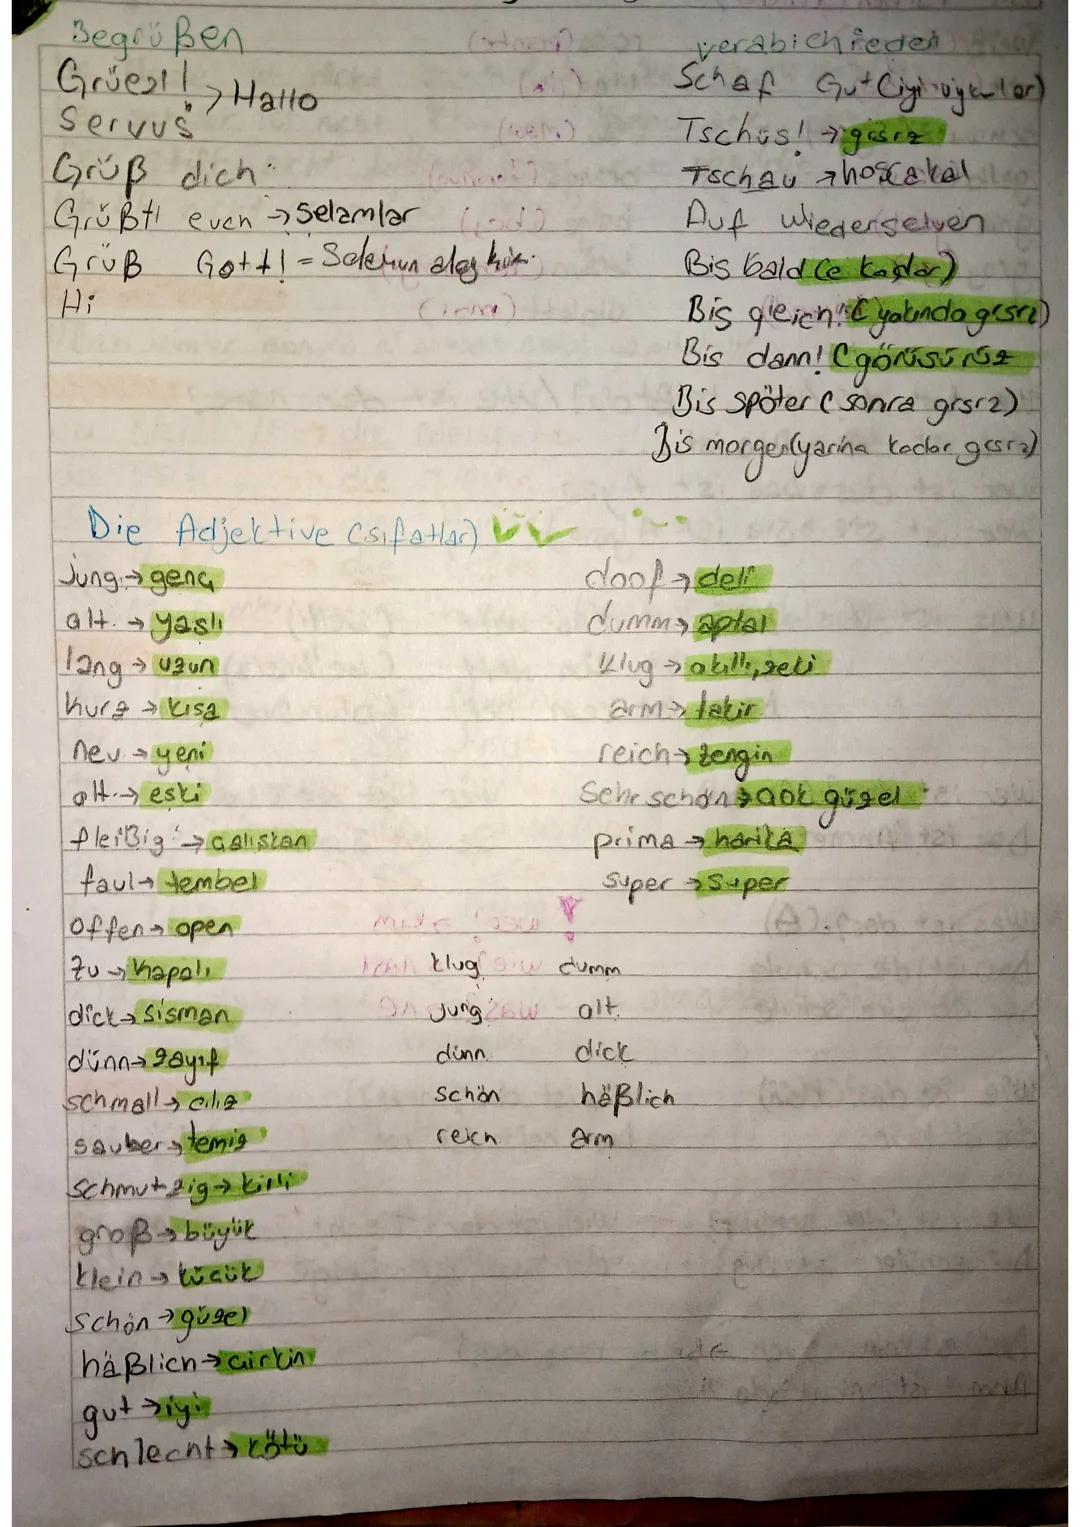 Begrüßen
Grüezi!
Servus
> Hallo
Grüß dich
Grüßt euch → Selamlar
Grüß Gott! =
Hi
verabichieden
Schaf Gut (iyi uykular)
Tschüs! → grsrz
Tschau → hoşcakal
Auf Wiedersehen
Bis bald (e kadar)
Bis gleich! (yakında grsrz)
Bis dann! (görüsürüz
Bis später (sonra grsrz)
Bis morgen (yarına kadar grsrz)
Die Adjektive (sıfatlar)
jung → genç
alt → yaşlı
lang → uzun
kurz → kısa
neu → yeni
alt → eski
fleißig → çalıskan
faul → tembel
offen → open
zu → kapalı
dick → sisman
dünn → zayıf
schmall → cılız
sauber → temiz
schmutzig → kirli
groß → büyük
klein → kücük
schön → güzel
häßlich → cirkin
gut → iyi
schlecht → kötü
doof → deli
dumm → aptal
klug → akıllı, zeki
arm → fakir
reich → zengin
Sehr schön → çok güzel
prima → harika
super → super
klug dumm
jung alt.
dünn dick
schön häßlich
reich arm